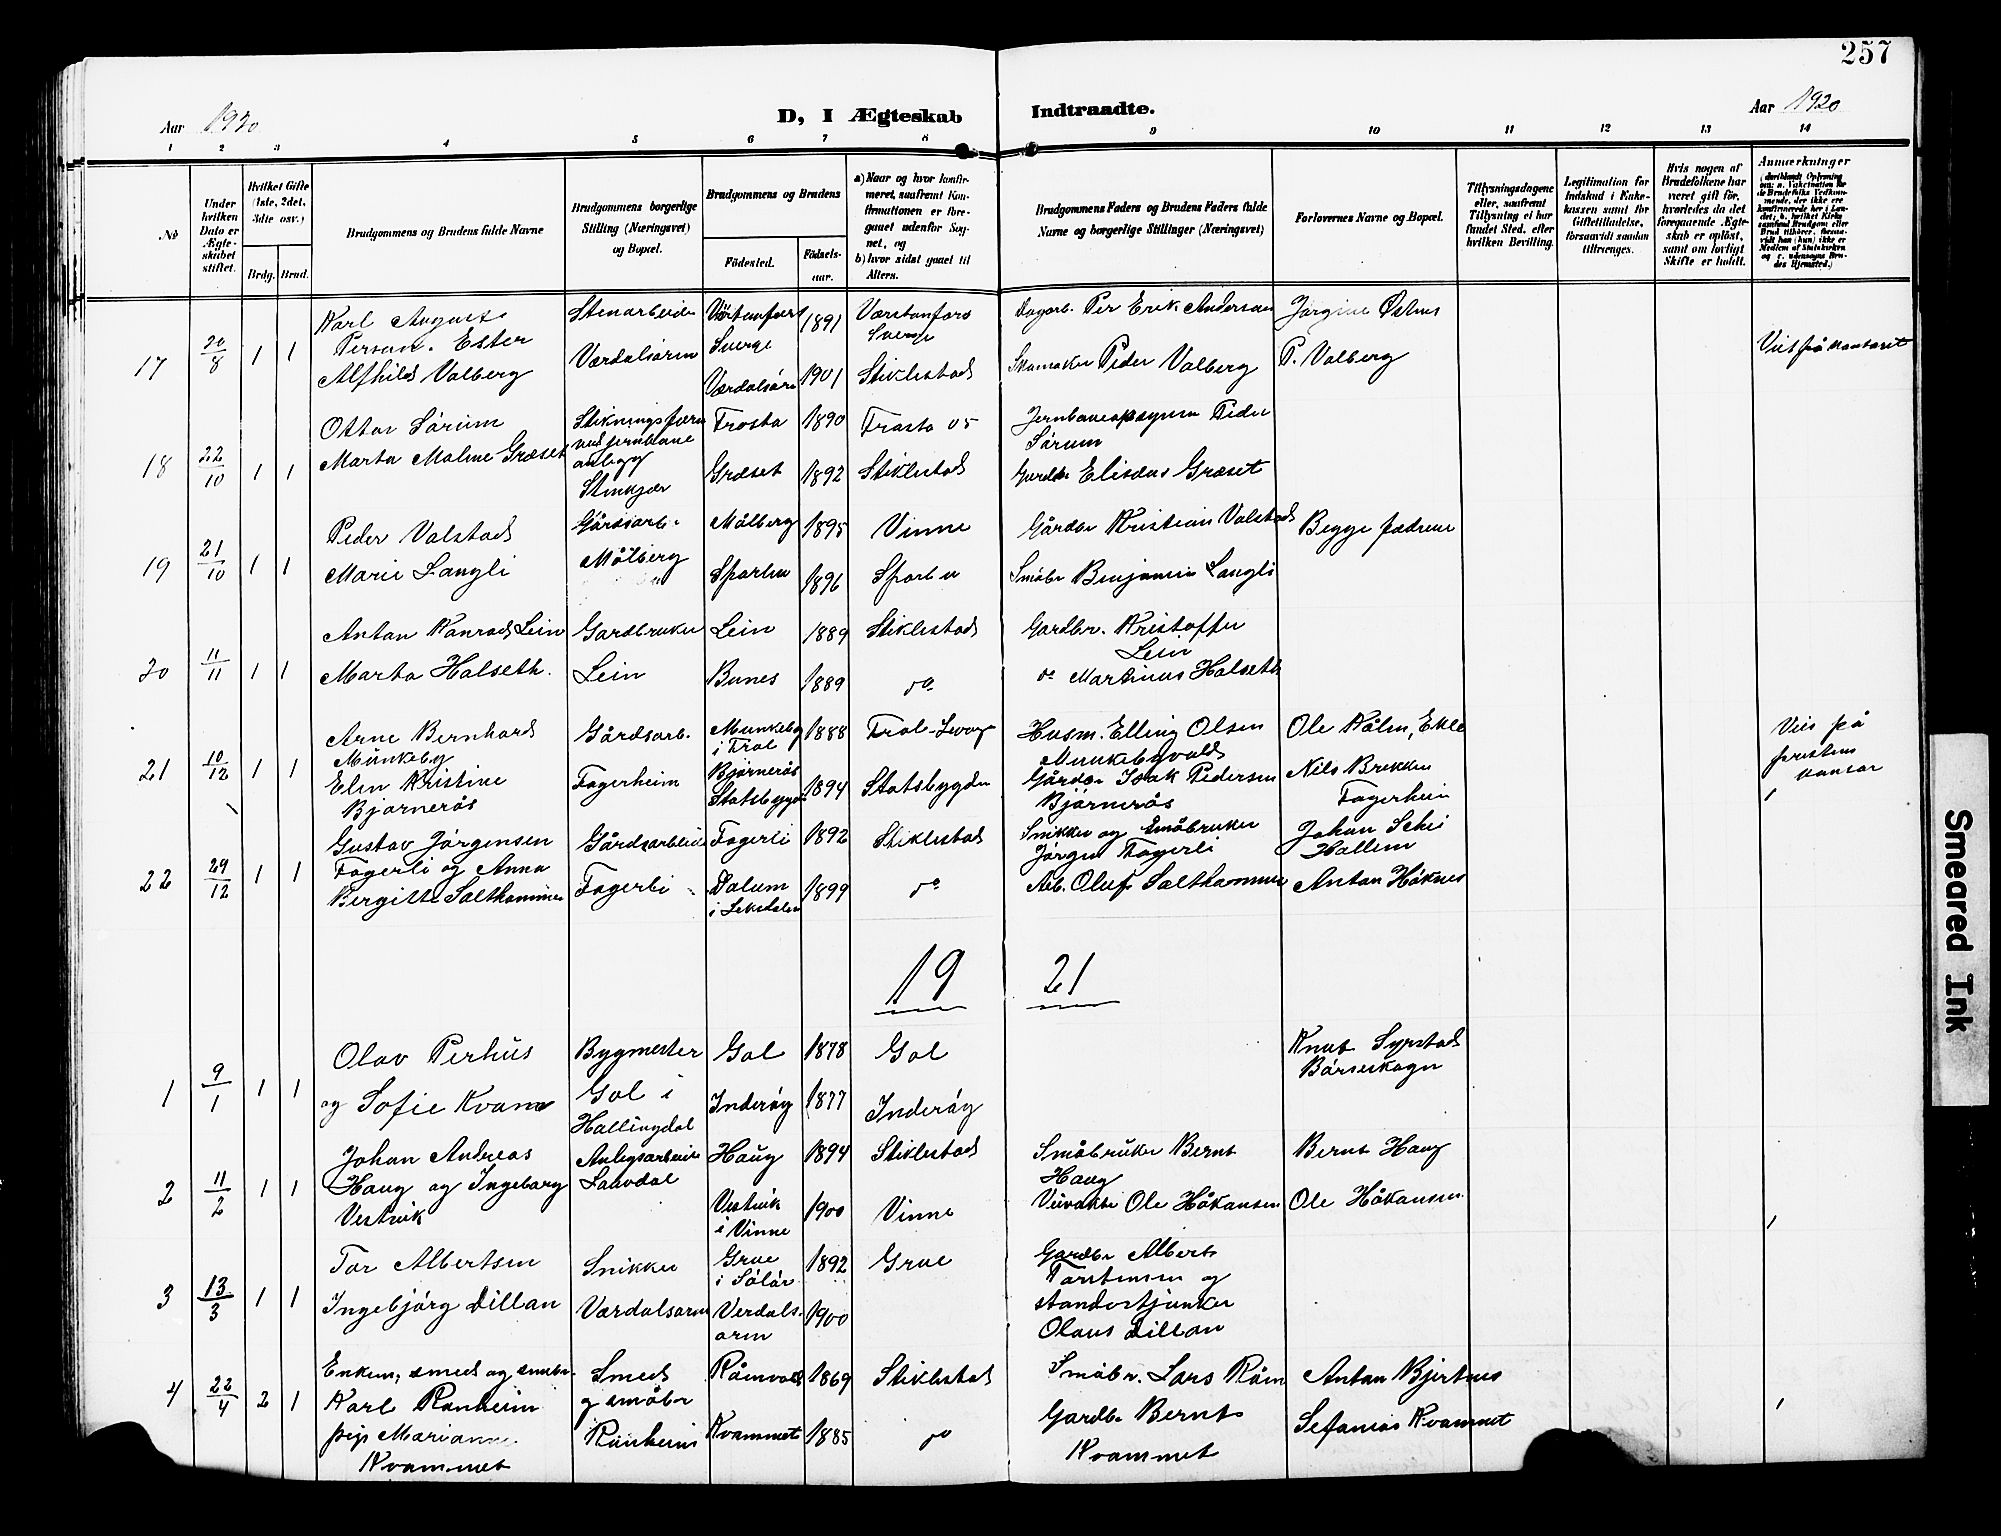 257
Aar 1920
D, I Ægteskab Indtraadte.
Aar 1920
1 2 3 4 5 6 7 8 9 10 11 12 13 14
No
Under hvilken Dato er Ægteskabet stiftet.
Hvilket Gifte (1ste, 2det, 3dte osv.)
Brdg. Brud.
Brudgommens og Brudens fulde Navne
Brudgommens borgerlige Stilling (Næringsvei) og Bopæl.
Brudgommens og Brudens
Fødested. Fødselsaar.
a) Naar og hvor konfirmeret, saafremt Konfirmationen er foregaaet udenfor Sognet, og
b) hvor sidst gaaet til Alters.
Brudgommens Faders og Brudens Faders fulde Navne og borgerlige Stillinger (Næringsvei)
Forlovernes Navne og Bopæl.
Tillysningsdagene eller, saafremt Tillysning ei har fundet Sted, efter hvilken Bevilling.
Legitimation for Indskud i Enkekassen samt for Giftetilladelse, forsaavidt saadan tiltrænges.
Hvis nogen af Brudefolkene har været gift før, hvorledes da det foregaaende Ægteskab er opløst, samt om lovligt Skifte er holdt.
Anmærkninger
17 20/8 1 1
Karl August Person. Ester Alfhild Valberg
Stenarbeider Værdalsøren
Sverge 1891
Værdalsøren 1901
Sverge
Stiklestad
Dagarb. Per Erik Anderson
Skomaker Peder Valberg
Jørgine Østnes
P. Valberg
18 22/10 1 1
Ottar Sørum
Marta Malene Græset
ved jernbane anlegg Stenkjær
Frosta 1890
Græset 1892
Frosta 05
Stiklestad
Peder Sørum
Gardbr Elisæus Græset
19 21/10 1 1
Peder Valstad
Marie Langli
Gårdsarb. Målberg
Målberg 1895
Sparbu 1896
Vinne
Sparbu
Gårdbr Kristian Valstad
Småbr Benjamin Langli
Begge fædrene
20 11/11 1 1
Anton Konrad Lein
Marta Halseth.
Gardbruker Lein
Lein 1889
Bunes 1889
Stiklestad
do
Gardbr. Kristoffer Lein
do Martinus Halseth
21 10/12 1 1
Arne Bernhard Munkeby
Elen Kristine Bjørnerås
Gårdsarb. Fagerheim
Munkeby i Frol 1888
Bjørnerås Stadsbygden 1894
Frol-Levag
Statsbygden
Husm. Elling Olsen Munkebyvald
Gårdbr Isak Pedersen Bjørnerås
Ole Kålen, Ekle
Nils Brekken Fagerheim
Viet på prestens kontor
22 29/12 1 1
Gustav Jørgensen Fagerli og Anna Bergitte Salthammer
Gårdsarbeider Fagerli
Fagerli 1892
Dalum i Leksdalen 1899
Stiklestad
do
Snikker og Småbruker Jørgen Fagerli
Arb. Oluf Salthammer
Johan Schei Hallem
Anton Høknes
19 21
1 9/1 1 1
Olav Perhus
og Sofie Kvam
Bygmester Gol i Hallingdal
Gol 1878
Inderøy 1877
Gol
Inderøy
Knut Syrstad Børseskogn
2 11/2 1 1
Johan Andreas Haug og Ingeborg Vestvik
Anlegsarbeider
Haug 1894
Vestvik i Vinne 1900
Stiklestad
Vinne
Småbruker Bernt Haug
Veivokter Ole Håkansen
Bernt Haug
Ole Håkansen
3 13/3 1 1
Tor Albertsen
Ingebjørg Dillan
Snikker Værdalsøren
Grue i Solør 1892
Verdalsøren 1900
Grue
Gardbr Albert Torstensen og
standartjunker Olaus Dillan
4 22/4 2 1
Enkem, smed og småbr. Karl Ranheim
pige Marianne Kvammet
Smed og småbr Ranheim
1869
Kvammet 1885
Stiklestad
do
Småbr. Lars Råen
Gardbr Bernt Kvammet
Anton Bjertnes
Sefanias Kvammet
Smeared Ink